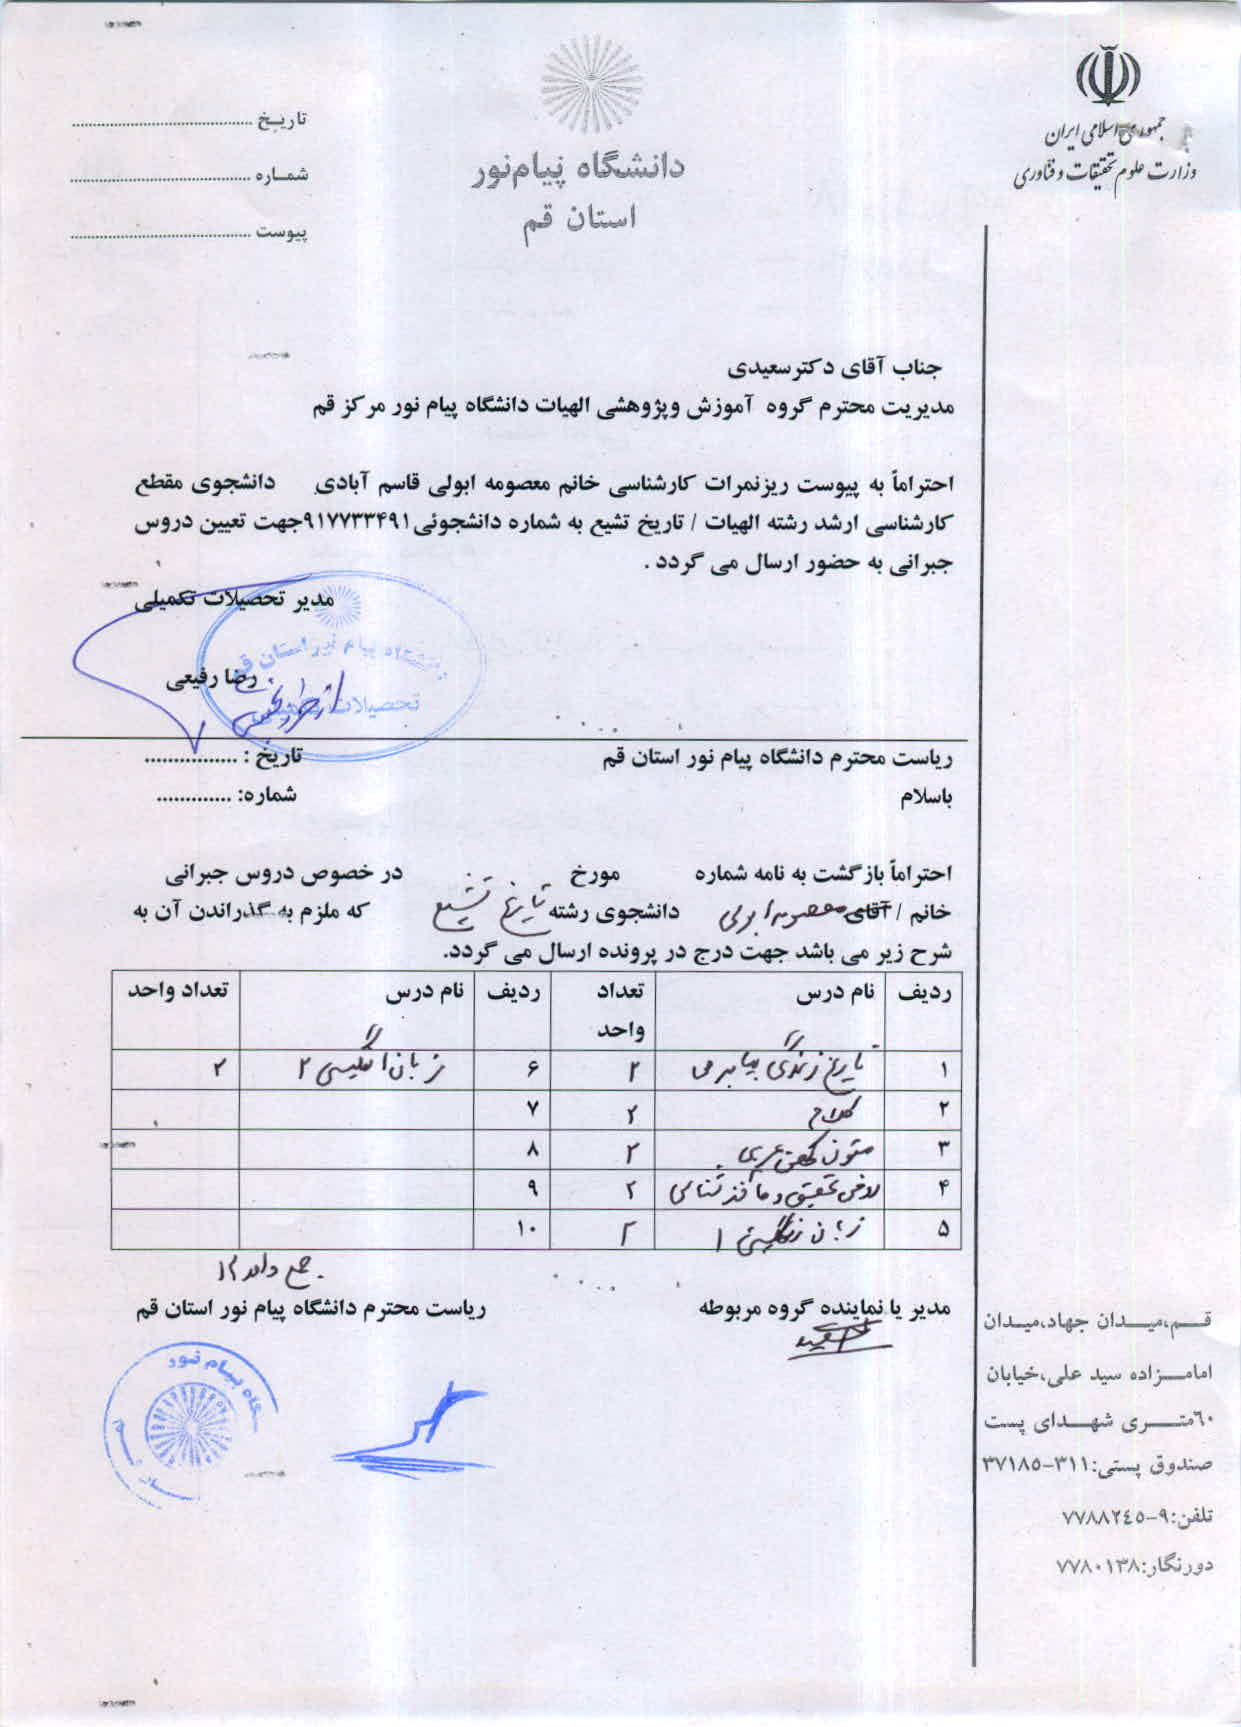 جمهوری اسلامی ایران
وزارت علوم تحقیقات و فناوری
دانشگاه پیام‌نور
استان قم
تاریـخ ..........................................
شمـاره ..........................................
پیوست ..........................................
جناب آقای دکترسعیدی
مدیریت محترم گروه آموزش وپژوهشی الهیات دانشگاه پیام نور مرکز قم
احتراماً به پیوست ریزنمرات کارشناسی خانم معصومه ابولی قاسم آبادی دانشجوی مقطع
کارشناسی ارشد رشته الهیات / تاریخ تشیع به شماره دانشجوئی ۹۱۷۷۳۳۴۹۱جهت تعیین دروس
جبرانی به حضور ارسال می گردد .
مدیر تحصیلات تکمیلی
دانشگاه پیام نور استان قم
رضا رفیعی
تحصیلات
ریاست محترم دانشگاه پیام نور استان قم
تاریخ : ................
باسلام
شماره: .............
احتراماً بازگشت به نامه شماره مورخ در خصوص دروس جبرانی
خانم / آقای معصومه ابولی دانشجوی رشته تاریخ تشیع که ملزم به گذراندن آن به
شرح زیر می باشد جهت درج در پرونده ارسال می گردد.
ردیف نام درس تعداد واحد ردیف نام درس تعداد واحد
۱ تاریخ زندگی پیامبر ۲ ۶ زبان انگلیسی ۲ ۲
۲ کلام ۲ ۷
۳ متون کهن عربی ۲ ۸
۴ روش تحقیق و ماخذ شناسی ۲ ۹
۵ زبان انگلیسی ۱ ۲ ۱۰
جمع واحد ۱۲
مدیر یا نماینده گروه مربوطه
ریاست محترم دانشگاه پیام نور استان قم
قـــم،میـــدان جهاد،میـدان
امامـــزاده سید علی،خیابان
٦٠متـــری شهـــدای پست
صندوق پستی:۳۱۱-۳۷۱۸٥
تلفن:۹-۷۷۸۸۲٤٥
دورنگار:۷۷۸۰۱۳۸